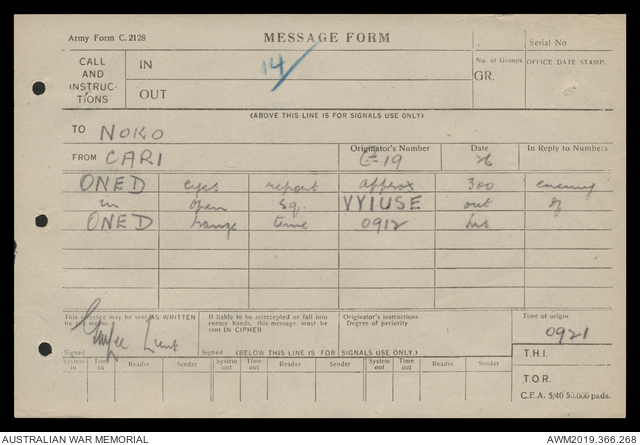 Army Form C. 2128
MESSAGE FORM
Serial No
CALL AND INSTRUC-TIONS
IN
14/
No. of Groups
GR.
OFFICE DATE STAMP.
OUT
(ABOVE THIS LINE IS FOR SIGNALS USE ONLY)
TO NOKO
FROM CARI
Originator's Number
19
Date
26
In Reply to Numbers
ONED eyes report approx 300 enemy
in open sq. VYIUSE out of
ONED range time 0912 hrs
This message may be sent AS WRITTEN by any means
If liable to be intercepted or fall into enemy hands, this message must be sent IN CIPHER
Originator's instructions
Degree of periority
Time of origin
0921
Lieut
Signed
Signed
(BELOW THIS LINE IS FOR SIGNALS USE ONLY)
T.H.I.
System in
Time in
Reader
Sender
System out
Time out
Reader
Sender
System out
Time out
Reader
Sender
T.O.R.
C.E.A. 5/40 50,000 pads.
AUSTRALIAN WAR MEMORIAL
AWM2019.366.268